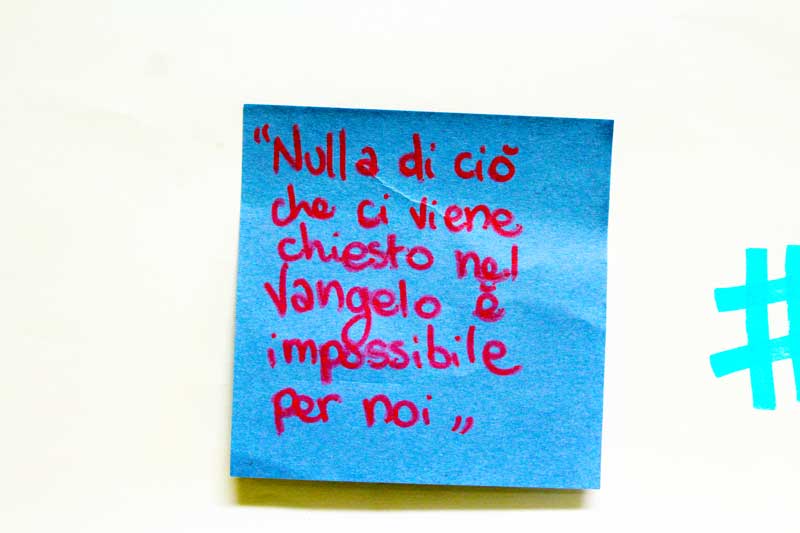 “Nulla di ciò
che ci viene
chiesto nel
Vangelo è
impossibile
per noi „
#